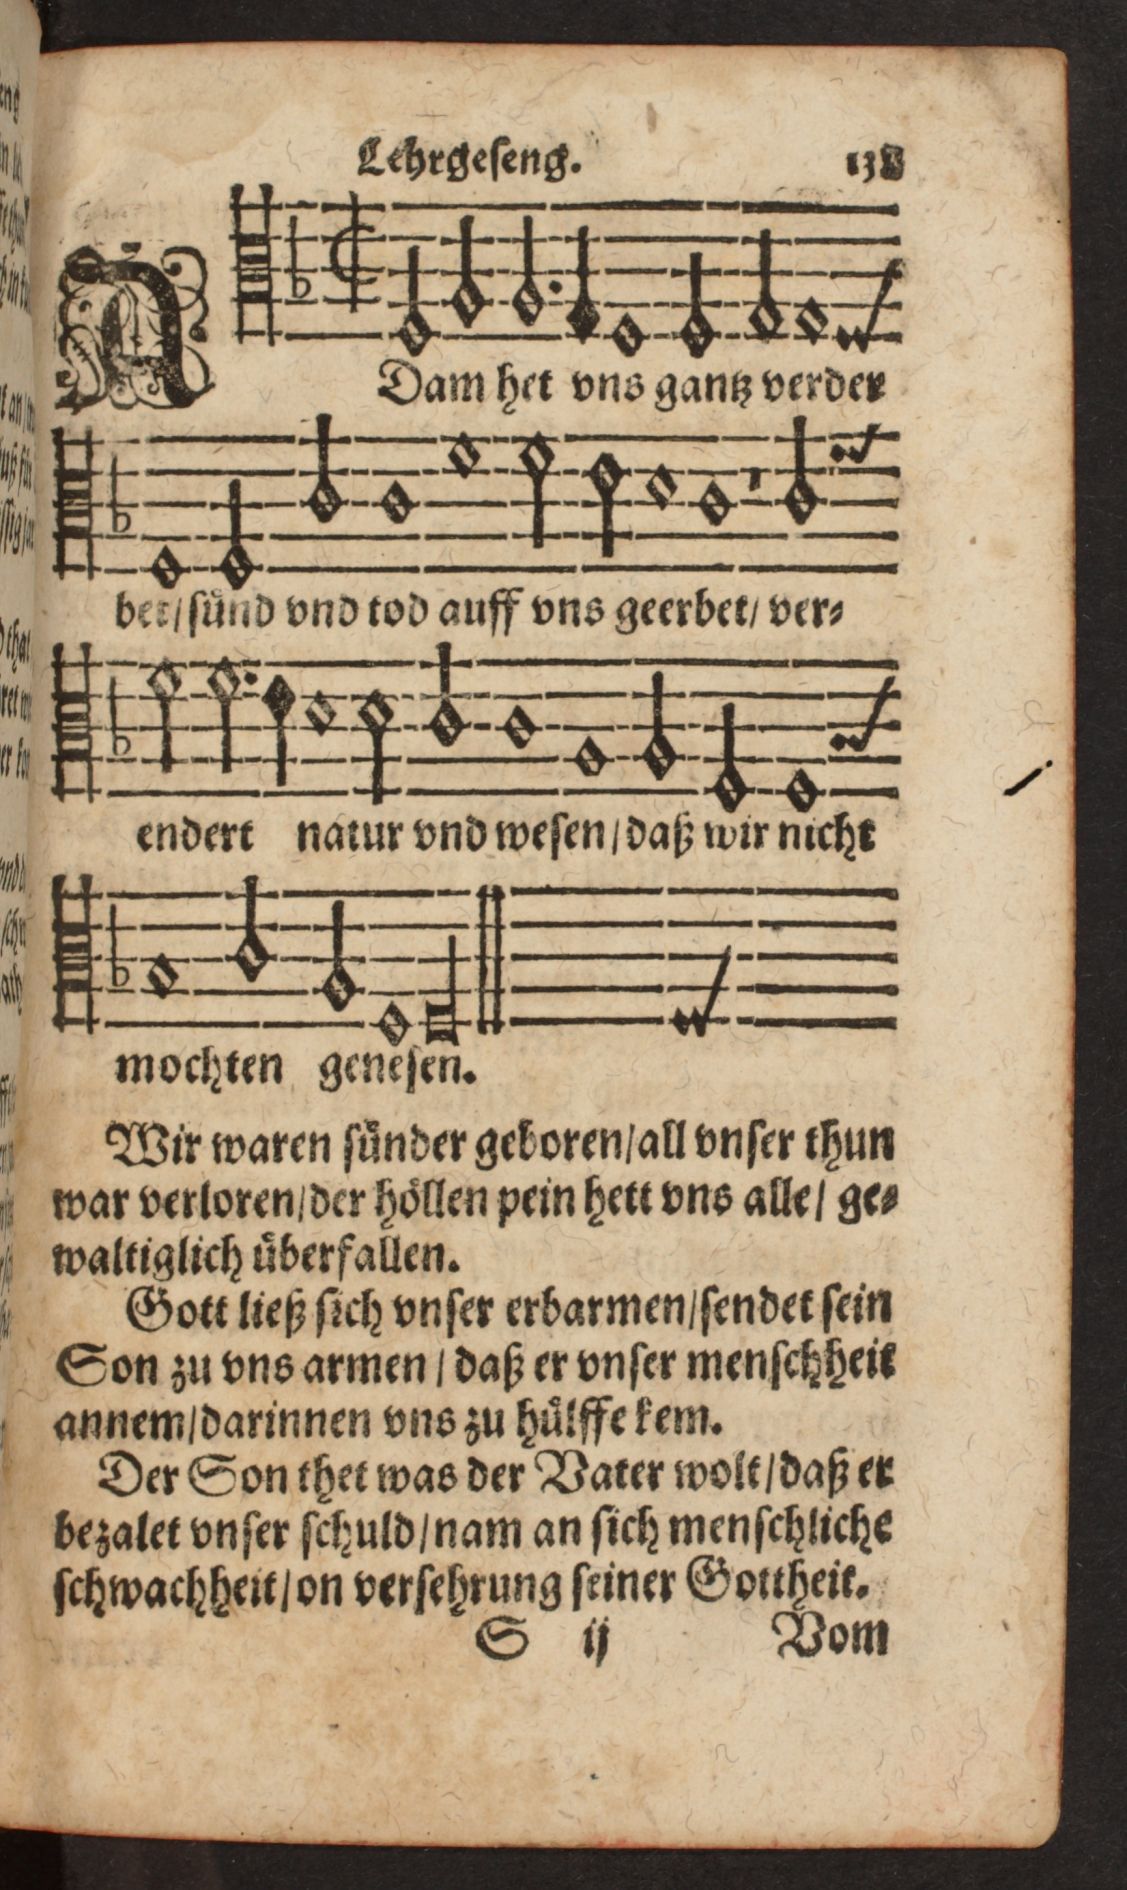 Lehrgeseng.
ADam het vns gantz verder
bet/ sünd vnd tod auff vns geerbet/ ver⸗
endert natur vnd wesen/ daß wir nicht
mochten genesen.
Wir waren sünder geboren/ all vnser thun
war verloren/ der höllen pein hett vns alle/ ge⸗
waltiglich überfallen.
Gott ließ sich vnser erbarmen/ sendet sein
Son zu vns armen/ daß er vnser menschheit
annem/ darinnen vns zu hülffe kem.
Der Son thet was der Vater wolt/ daß er
bezalet vnser schuld/ nam an sich menschliche
schwachheit/ on versehrung seiner Gottheit.
S ij Vom